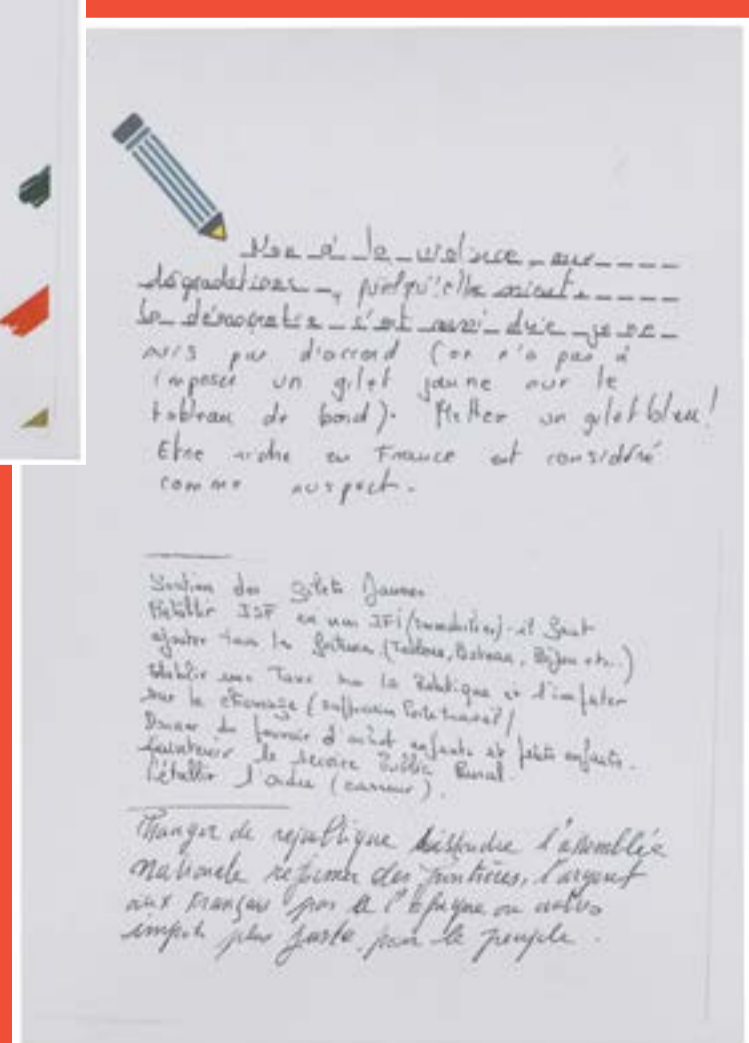 Non à la violence, aux
dégradations, quelqu'elle soient.
la démocratie c'est aussi dire je ne
suis pas d'accord (on n'a pas à
imposer un gilet jaune sur le
tableau de bord). Mettez un gilet bleu!
Etre riche en France est considéré
comme suspect.
Soutien des gilets Jaunes
Rétablir ISF en un IFI (immobilier). il faut
ajouter tous les fortunes (Tableaux, Bateaux, Bijoux etc..)
établir une Taxe sur la Robotique et l'imputer
sur le chômage (suppression Poste travail)
Donner du pouvoir d'achat enfants et petits enfants.
le service Public Rural
Rétablir l'ordre (casseurs).
Changer de republique dissoudre l'assemblée
nationale refermer des frontières, l'argent
aux Français pas a l' ou autres
impots plus juste, pour le peuple.